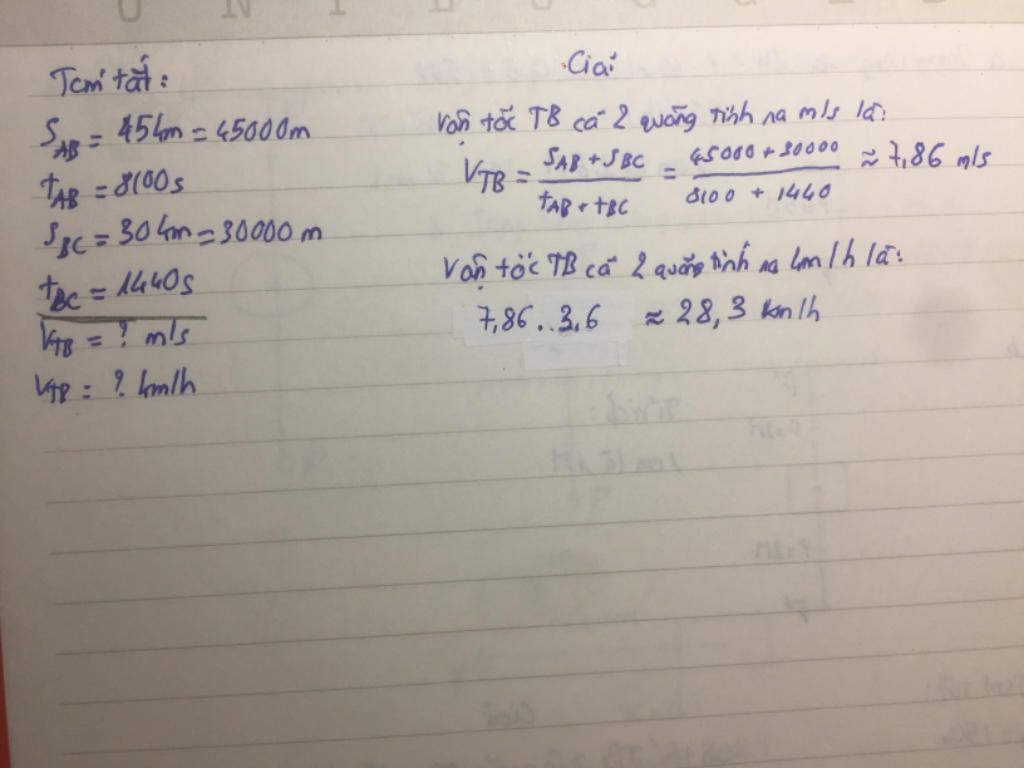 Tóm tắt:
S_AB = 45km = 45000m
t_AB = 8100s
S_BC = 30km = 30000m
t_BC = 1440s
V_TB = ? m/s
V_TB = ? km/h
Giải
Vận tốc TB cả 2 quãng tính ra m/s là:
V_TB = (S_AB + S_BC) / (t_AB + t_BC) = (45000 + 30000) / (8100 + 1440) ≈ 7,86 m/s
Vận tốc TB cả 2 quãng tính ra km/h là:
7,86 . 3,6 ≈ 28,3 km/h